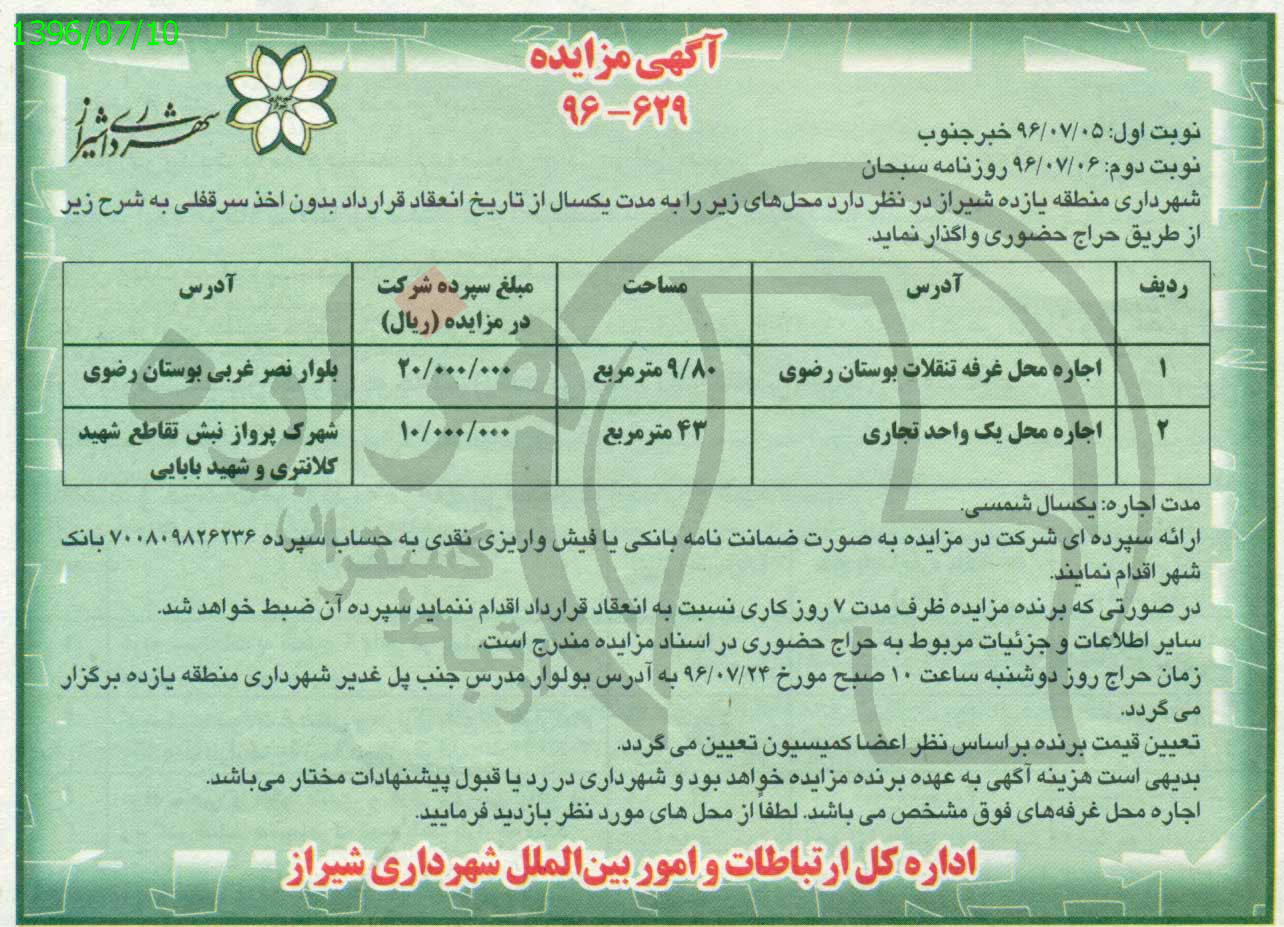 1396/07/10
آگهی مزایده
۹۶-۶۲۹
شهرداری شیراز
نوبت اول: ۹۶/۰۷/۰۵ خبر جنوب
نوبت دوم: ۹۶/۰۷/۰۶ روزنامه سبحان
شهرداری منطقه یازده شیراز در نظر دارد محل‌های زیر را به مدت یکسال از تاریخ انعقاد قرارداد بدون اخذ سرقفلی به شرح زیر
از طریق حراج حضوری واگذار نماید.
ردیف آدرس مساحت مبلغ سپرده شرکت آدرس
در مزایده (ریال)
۱ اجاره محل غرفه تنقلات بوستان رضوی ۹/۸۰ مترمربع ۲۰/۰۰۰/۰۰۰ بلوار نصر غربی بوستان رضوی
۲ اجاره محل یک واحد تجاری ۴۳ مترمربع ۱۰/۰۰۰/۰۰۰ شهرک پرواز نبش تقاطع شهید
کلانتری و شهید بابایی
مدت اجاره: یکسال شمسی.
ارائه سپرده ای شرکت در مزایده به صورت ضمانت نامه بانکی یا فیش واریزی نقدی به حساب سپرده ۷۰۰۸۰۹۸۲۶۲۳۶ بانک
شهر اقدام نمایند.
در صورتی که برنده مزایده ظرف مدت ۷ روز کاری نسبت به انعقاد قرارداد اقدام ننماید سپرده آن ضبط خواهد شد.
سایر اطلاعات و جزئیات مربوط به حراج حضوری در اسناد مزایده مندرج است.
زمان حراج روز دوشنبه ساعت ۱۰ صبح مورخ ۹۶/۰۷/۲۴ به آدرس بولوار مدرس جنب پل غدیر شهرداری منطقه یازده برگزار
می گردد.
تعیین قیمت برنده براساس نظر اعضا کمیسیون تعیین می گردد.
بدیهی است هزینه آگهی به عهده برنده مزایده خواهد بود و شهرداری در رد یا قبول پیشنهادات مختار می‌باشد.
اجاره محل غرفه‌های فوق مشخص می باشد. لطفاً از محل های مورد نظر بازدید فرمایید.
اداره کل ارتباطات و امور بین‌الملل شهرداری شیراز